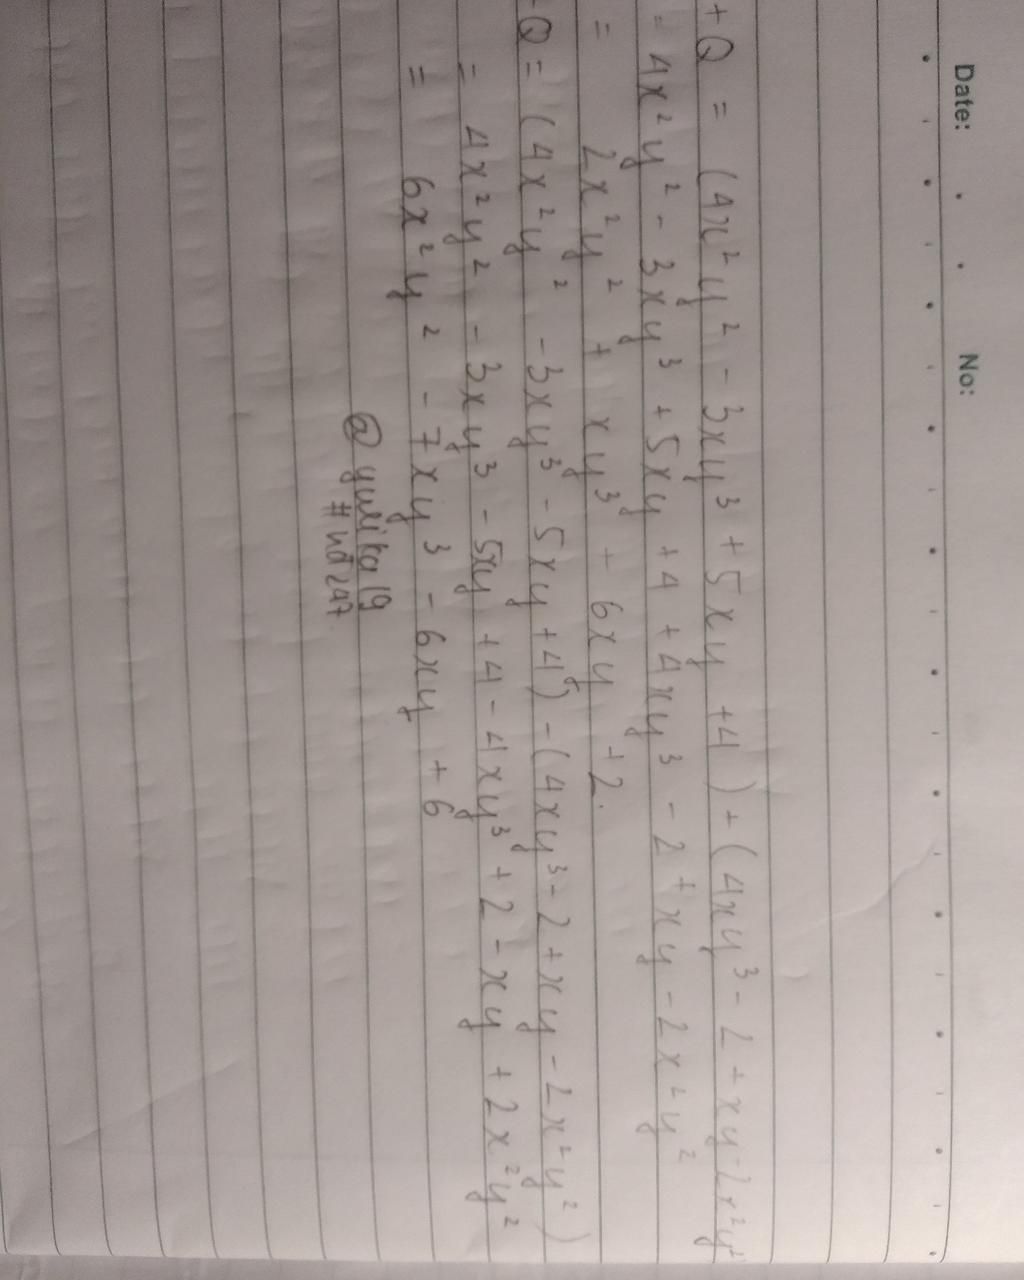 Date: No:
+ Q = (4x²y² - 3xy³ + 5xy + 4) + (4xy³ - 2 + xy - 2x²y²
= 4x²y² - 3xy³ + 5xy + 4 + 4xy³ - 2 + xy - 2x²y²
= 2x²y² + xy³ + 6xy + 2.
- Q = (4x²y² - 3xy³ - 5xy + 4) - (4xy³ - 2 + xy - 2x²y²)
= 4x²y² - 3xy³ - 5xy + 4 - 4xy³ + 2 - xy + 2x²y²
= 6x²y² - 7xy³ - 6xy + 6
@yulika19